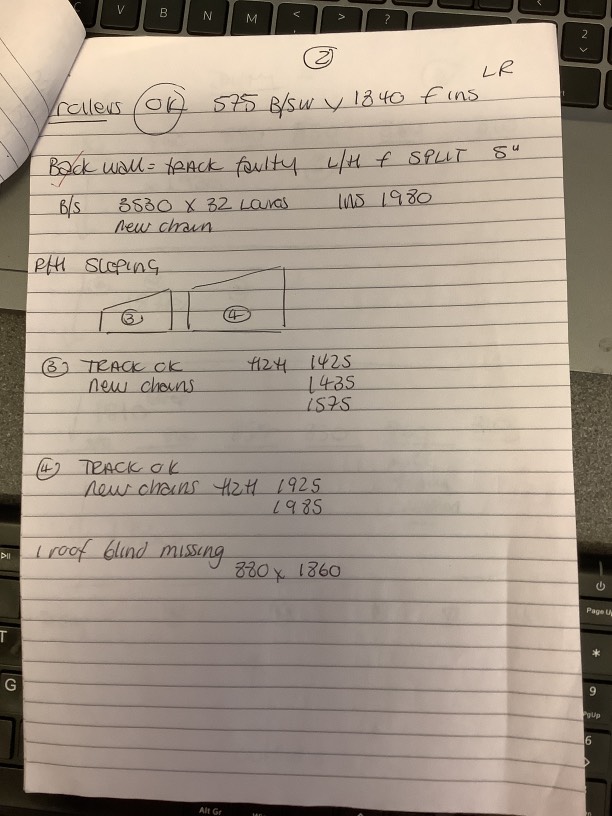 ②
LR
rollers OK 575 B/SW x 1840 fins
Back wall = track faulty L/H f SPLIT 5"
B/S 3530 x 32 Louvres INS 1980
new chain
R/H SLOPING
③ ④
③ TRACK OK H2H 1425
new chains 1435
1575
④ TRACK OK
new chains H2H 1925
1985
1 roof blind missing
880 x 1860
C V B N M < > ?
2
T
G
Page U
*
9
PgUp
6
Alt Gr